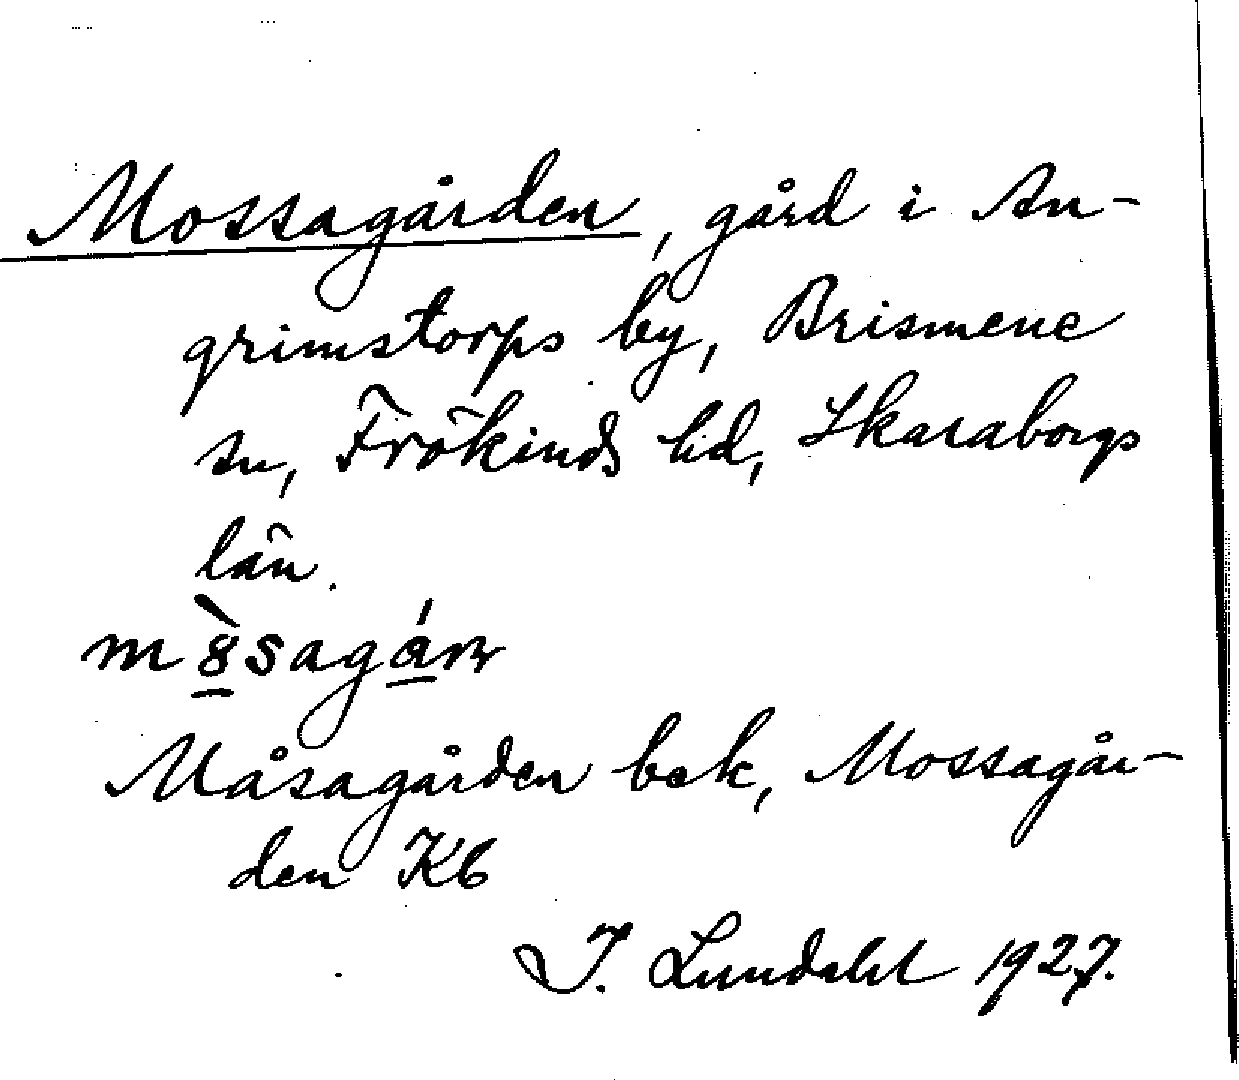 Mossagården, gård i An-
grimstorps by, Brismene
sn, Frökinds hd, Skaraborgs
län.
Måsagården bek, Mossagår-
den Kb
I. Lundahl 1927.